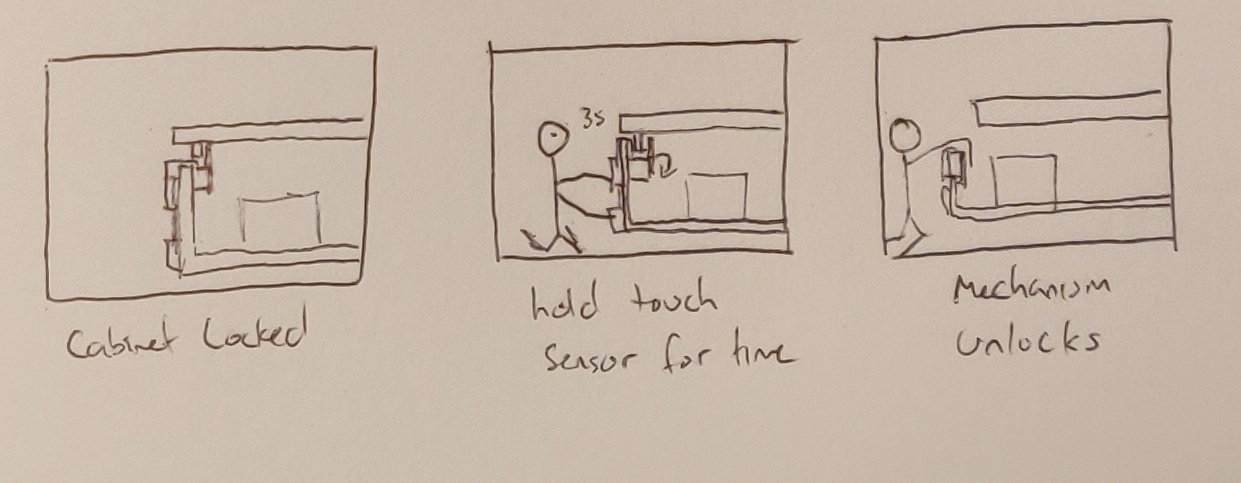 3s
Cabinet Locked
hold touch
sensor for time
Mechanism
unlocks